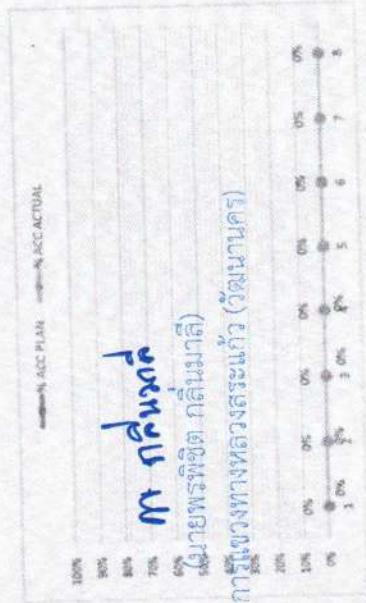 % ACC PLAN % ACC ACTUAL
100%
90%
80%
70%
60%
50%
40%
30%
20%
10%
0%
0% 0% 0% 0% 0% 0% 0% 0%
0% 0% 0% 0%
1 2 3 4 5 6 7 8
กลิ่นมาลี
(นายพรพิชิต กลิ่นมาลี)
การแขวงทางหลวงสระแก้ว (วัฒนานคร)